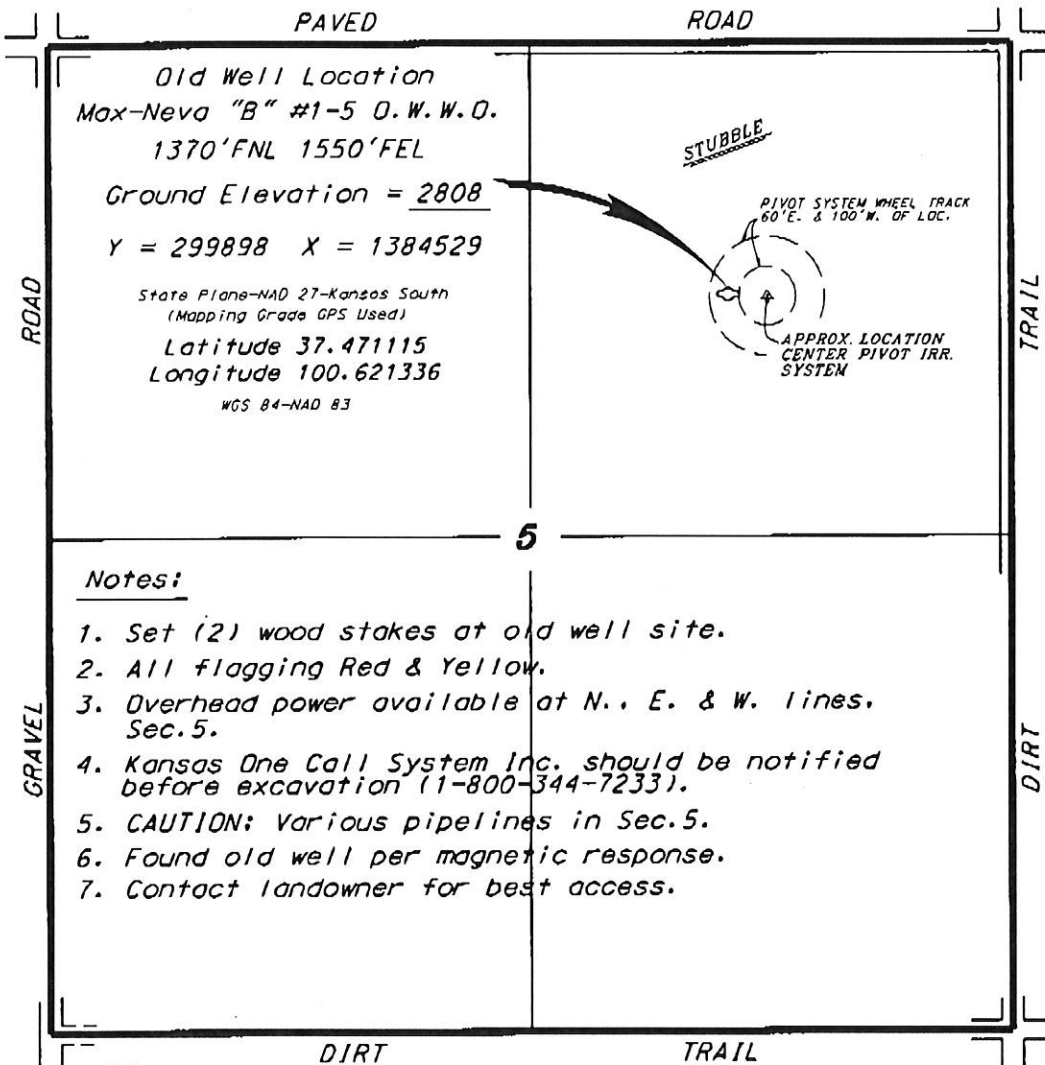 PAVED ROAD
Old Well Location
Max-Neva "B" #1-5 O.W.W.O.
1370'FNL 1550'FEL
Ground Elevation = 2808
Y = 299898 X = 1384529
State Plane-NAD 27-Kansas South
(Mapping Grade GPS Used)
Latitude 37.471115
Longitude 100.621336
WGS 84-NAD 83
STUBBLE
PIVOT SYSTEM WHEEL TRACK
60'E. & 100'W. OF LOC.
APPROX. LOCATION
CENTER PIVOT IRR.
SYSTEM
ROAD
TRAIL
5
Notes:
1. Set (2) wood stakes at old well site.
2. All flagging Red & Yellow.
3. Overhead power available at N., E. & W. lines,
Sec.5.
4. Kansas One Call System Inc. should be notified
before excavation (1-800-344-7233).
5. CAUTION: Various pipelines in Sec.5.
6. Found old well per magnetic response.
7. Contact landowner for best access.
GRAVEL
DIRT
DIRT TRAIL